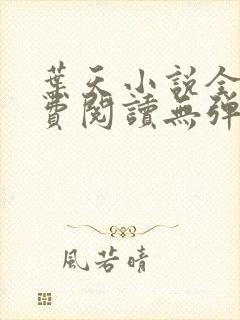 葉天小說全
費閱讀無彈
風若晴